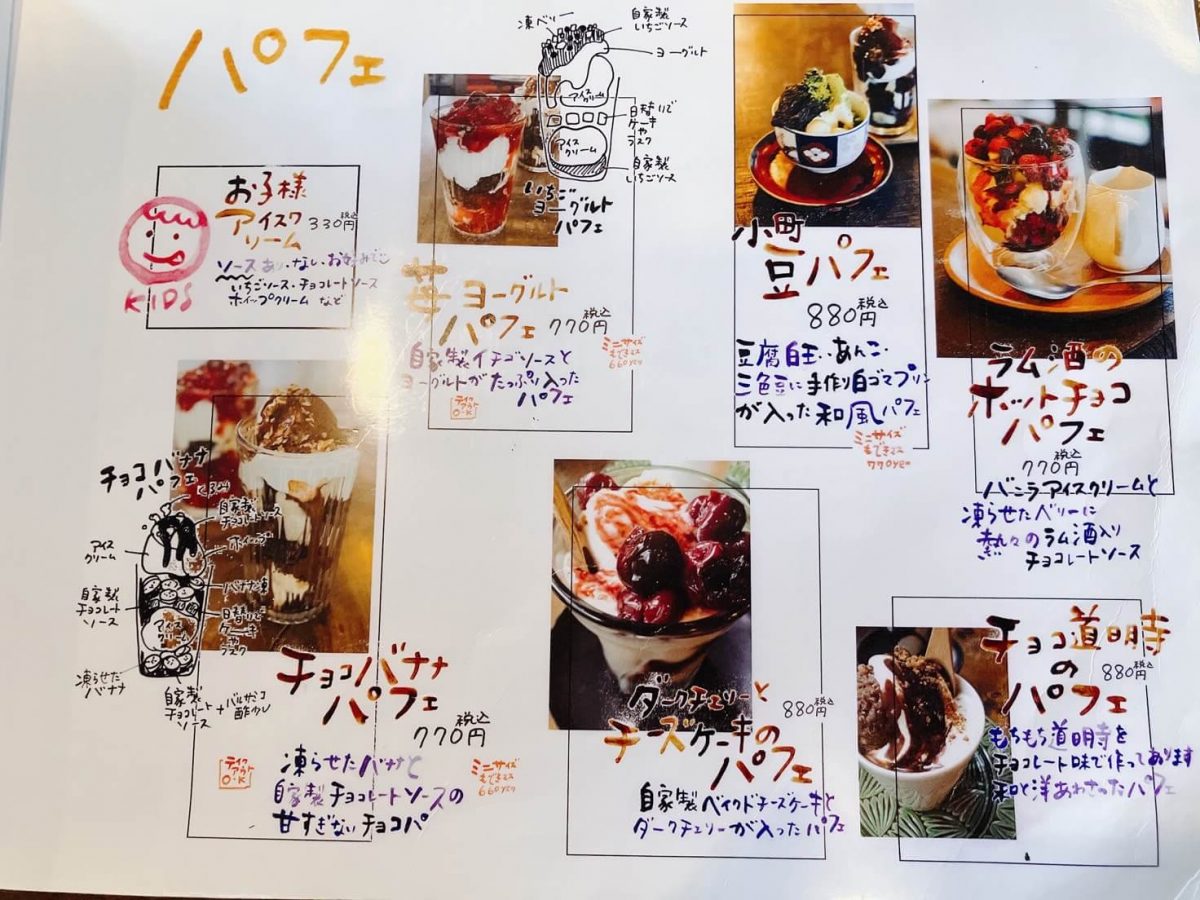 パフェ
お子様
アイスク
リーム
330円
税込
ソースあり・なし・お好みで
いちごソース・チョコレートソース
ホイップクリーム など
KIDS
凍ベリー
自家製
いちごソース
ヨーグルト
アイスクリーム
日替りで
ケーキ
や
ラスク
アイス
クリーム
自家製
いちごソース
いちご
ヨーグルト
パフェ
苺ヨーグルト
パフェ
税込
770円
ミニサイズ
もできマス
660yen
自家製イチゴソースと
ヨーグルトがたっぷり入った
パフェ
テイク
アウト
O・K
小町
豆パフェ
税込
880円
豆腐白玉・あんこ・
三色豆に手作り白ゴマプリン
が入った和風パフェ
ミニサイズ
もできマス
770yen
ラム酒の
ホットチョコ
パフェ
税込
770円
バニラアイスクリームと
凍らせたベリーに
熱々のラム酒入り
チョコレートソース
チョコバナナ
パフェ
くるみ
自家製
チョコレートソース
アイス
クリーム
ホイップ
バナナ凍
自家製
チョコレート
ソース
日替りで
ケーキ
や
ラスク
アイス
クリーム
凍らせた
バナナ
自家製
チョコレート
ソース
+
バルサミコ
酢少し
チョコバナナ
パフェ
税込
770円
テイク
アウト
O・K
凍らせたバナナと
自家製チョコレートソースの
甘すぎないチョコパ
ミニサイズ
もできマス
660yen
ダークチェリーと
チーズケーキの
パフェ
税込
880円
自家製ベイクドチーズケーキと
ダークチェリーが入ったパフェ
チョコ道明寺
の
パフェ
税込
880円
もちもち道明寺を
チョコレート味で作ってあります
和と洋あわさったパフェ